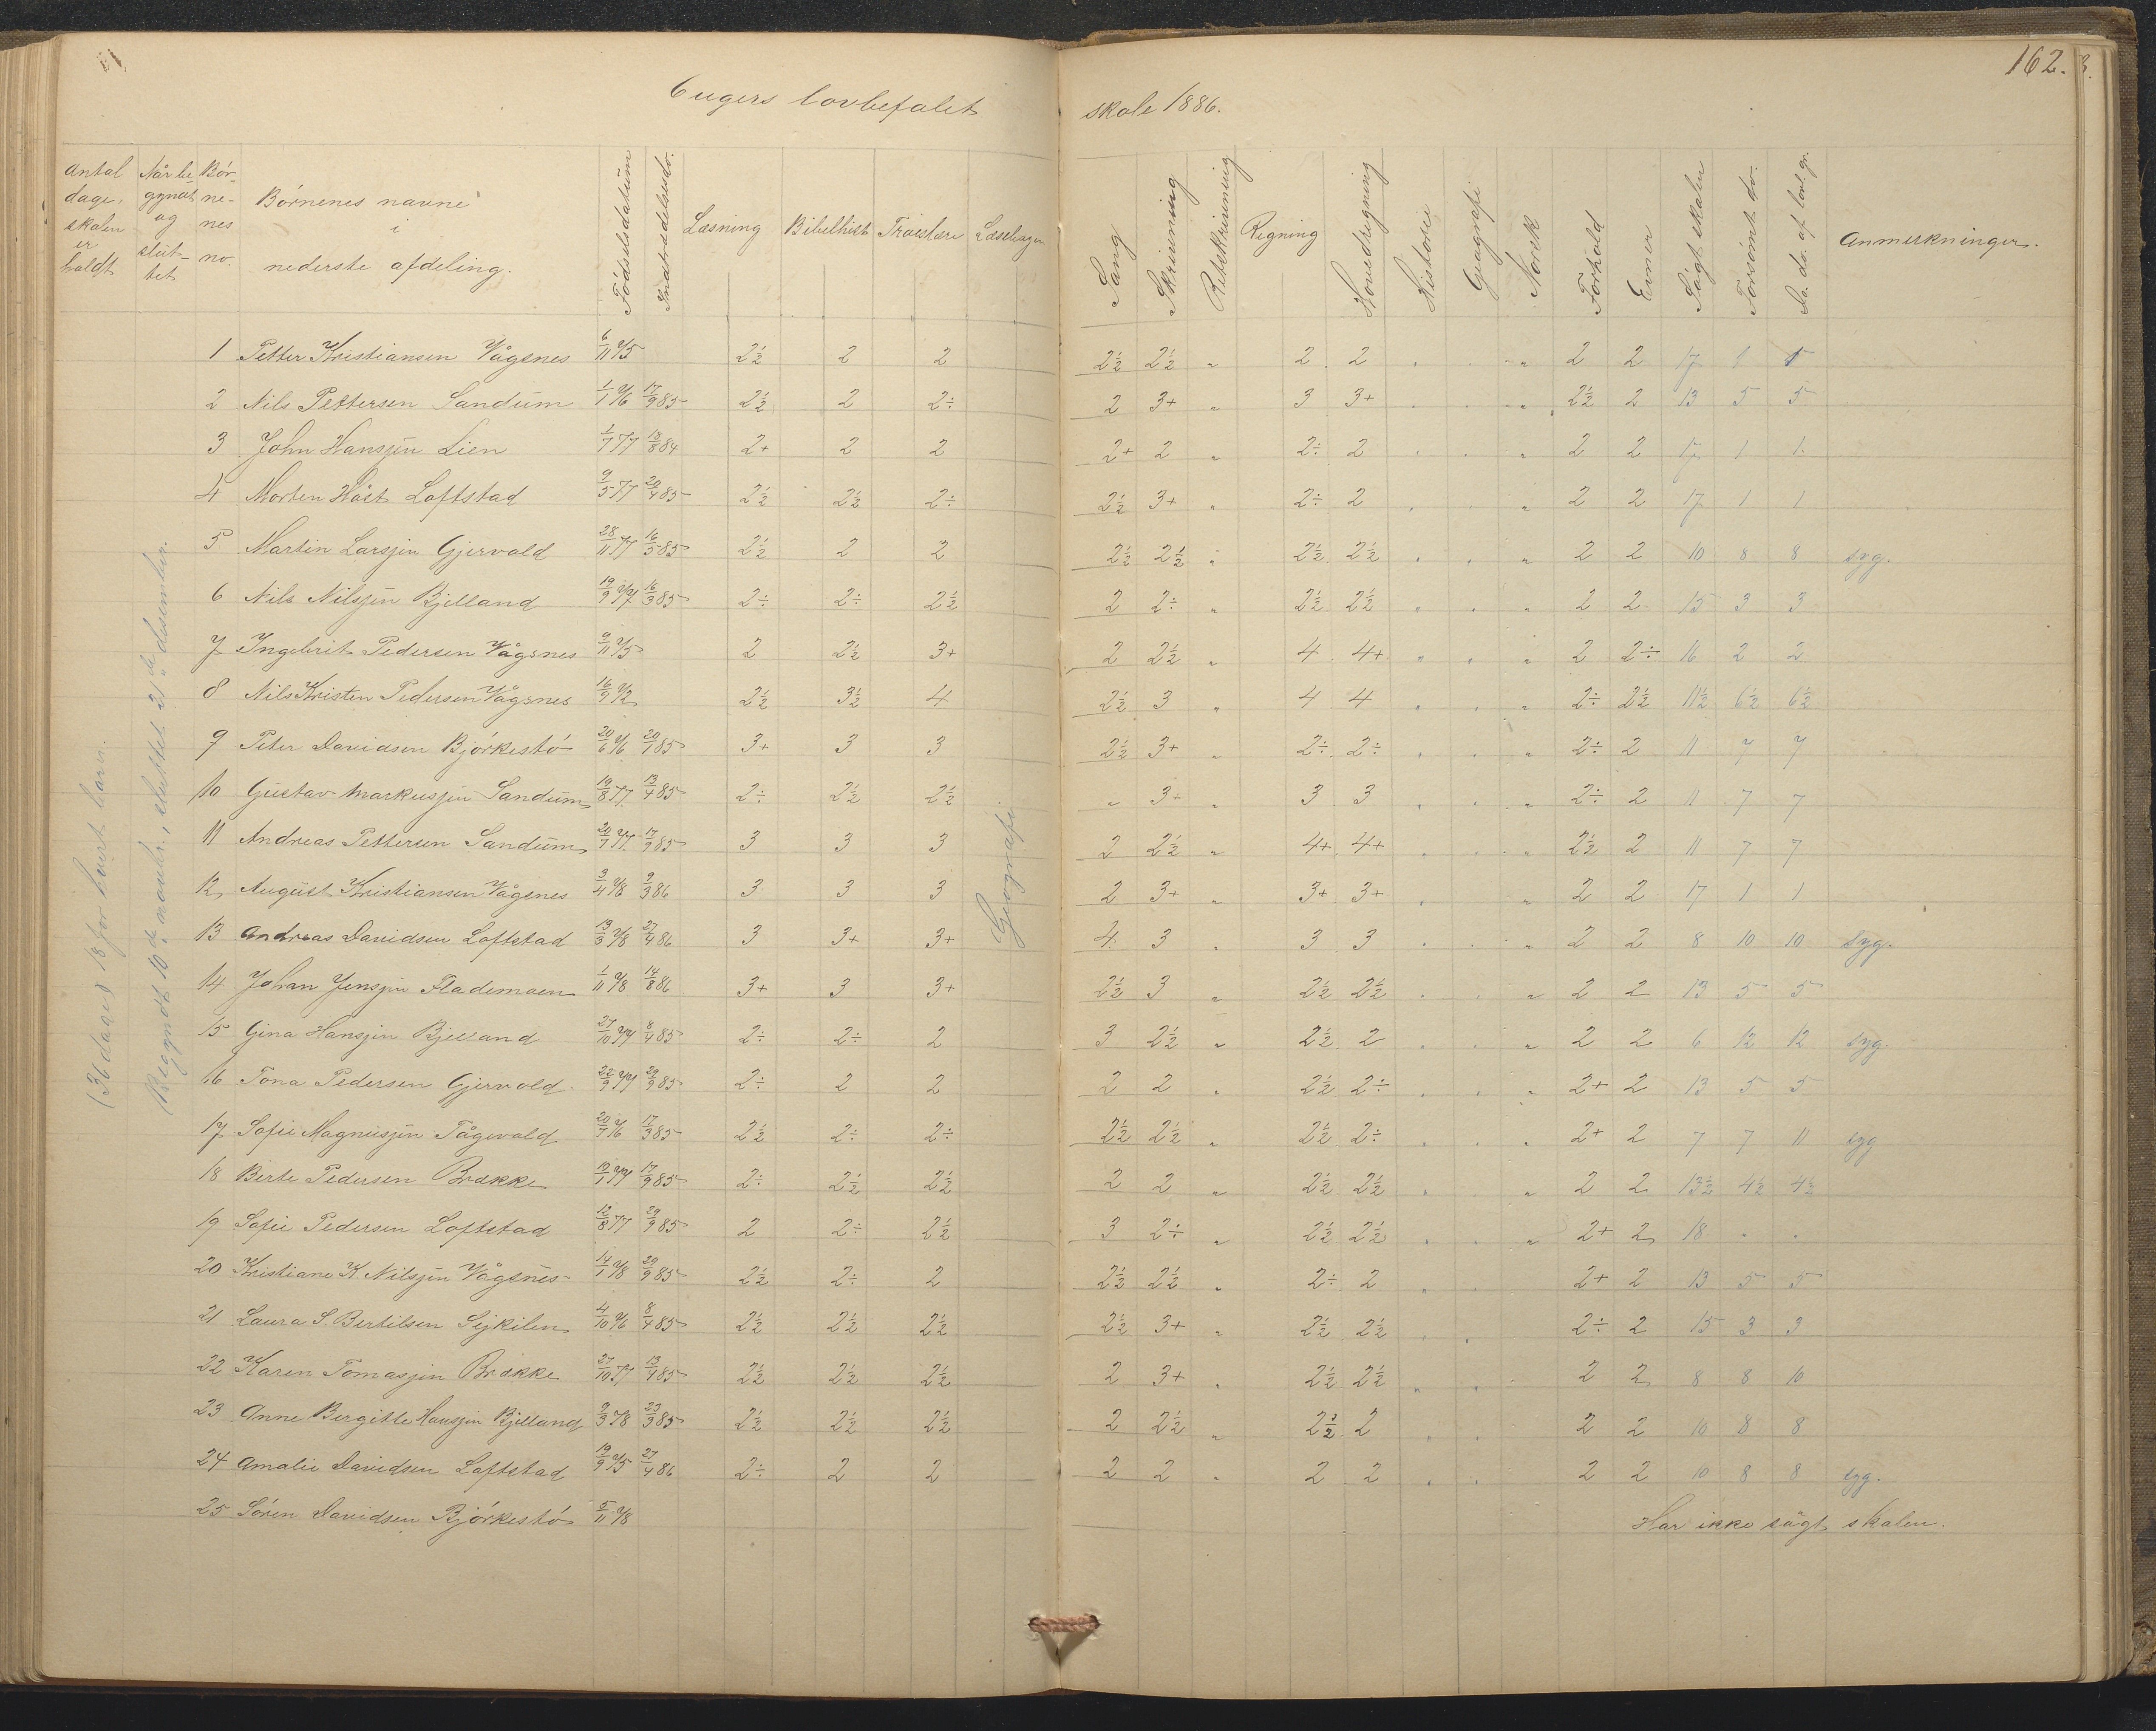 162.
6 ugers lovbefalet skole 1886.
Antal dage, skolen er holdt
Når begynat og sluttet
Børnenes no.
Børnenes navne i nederste afdeling.
Fødselsdatum
Indtrædelsesdo.
Læsning
Bibelhist.
Troeslære
Sang
Skrivning
Retskrivning
Regning
Hovedregning
Historie
Geografi
Norsk
Forhold
Evner
Søgt skolen
Forsømt do.
Do. do. af lovl. gr.
Anmerkninger.
(36 dage) 18 for hvert barn.
(Begyndt 10de novbr., sluttet 21de desember.
Geografi
1 Petter Kristiansen Vågsnes 6/11 75 2½ 2 2 2½ 2½ „ 2 2 2 2 17 1 1
2 Nils Pettersen Sandum 1/1 76 17/9 85 2½ 2 2÷ 2 3+ „ 3 3+ 2½ 2 13 5 5
3 John Hansjin Lien 1/7 77 18/8 84 2+ 2 2 2+ 2 „ 2÷ 2 2 2 17 1 1
4 Morten Høst Loftstad 9/5 77 20/4 85 2½ 2½ 2÷ 2½ 3+ „ 2÷ 2 2 2 17 1 1
5 Martin Larsjin Gjervold 28/11 77 16/5 85 2½ 2 2 2½ 2½ „ 2½ 2½ 2 2 10 8 8 syg.
6 Nils Nilsjin Kjelland 19/9 77 16/3 85 2÷ 2÷ 2½ 2 2÷ „ 2½ 2½ 2 2 15 3 3
7 Ingebrit Pedersen Vågsnes 9/11 75 2 2½ 3+ 2 2½ „ 4 4+ 2 2÷ 16 2 2
8 Nils Kristen Pedersen Vågsnes 16/9 72 2½ 3½ 4 2½ 3 „ 4 4 2÷ 2½ 11½ 6½ 6½
9 Peter Davidsen Bjørkestø 20/6 76 20/7 85 3+ 3 3 2½ 3+ 2÷ 2÷ 2÷ 2 11 7 7
10 Gustav Markusjin Sandum 19/8 77 13/4 85 2÷ 2½ 2½ „ 3+ „ 3 3 2÷ 2 11 7 7
11 Andreas Pettersen Sandum 20/7 77 17/9 85 3 3 3 2 2½ „ 4+ 4+ 2½ 2 11 7 7
12 August Kristiansen Vågsnes 3/4 78 9/3 86 3 3 3 2 3+ „ 3+ 3+ 2 2 17 1 1
13 Andreas Davidsen Loftstad 13/3 78 27/4 86 3 3+ 3+ 4 3 „ 3 3 2 2 8 10 10 syg.
14 Johan Jensjin Flademoen 1/11 78 14/8 86 3+ 3 3+ 2½ 3 „ 2½ 2½ 2 2 13 5 5
15 Gina Hansjin Kjelland 27/10 77 8/4 85 2÷ 2÷ 2 3 2½ „ 2½ 2 2 2 6 12 12 syg.
16 Tona Pedersen Gjervold 22/9 77 29/9 85 2÷ 2 2 2 2 „ 2½ 2÷ 2+ 2 13 5 5
17 Sofie Magnusjin Tågvold 20/7 76 17/3 85 2½ 2÷ 2÷ 2½ 2½ „ 2½ 2÷ 2+ 2 7 7 11 syg
18 Birte Pedersen Brække 19/1 77 17/9 85 2÷ 2½ 2½ 2 2 „ 2½ 2½ 2 2 13½ 4½ 4½
19 Sofie Pedersen Loftstad 12/8 77 29/9 85 2 2÷ 2½ 3 2÷ „ 2½ 2½ 2+ 2 18 . .
20 Kristiane K. Nilsjin Vågsnes 14/1 78 29/9 85 2½ 2÷ 2 2½ 2½ „ 2÷ 2 2+ 2 13 5 5
21 Laura S. Bertilsen Sejkilen 4/10 76 8/4 85 2½ 2½ 2½ 2½ 3+ „ 2½ 2½ 2÷ 2 15 3 3
22 Karen Tomasjin Brække 27/10 77 13/4 85 2½ 2½ 2½ 2 3+ „ 2½ 2½ 2 2 8 8 10
23 Anne Bergitte Hansjin Kjelland 9/3 78 23/3 85 2½ 2½ 2½ 2 2½ „ 2½ 2 2 2 10 8 8
24 Amalie Davidsen Loftstad 19/9 75 27/4 86 2÷ 2 2 2 2 „ 2 2 2 2 10 8 8 syg.
25 Søren Davidsen Bjørkestø 5/11 78 Har ikke søgt skolen.